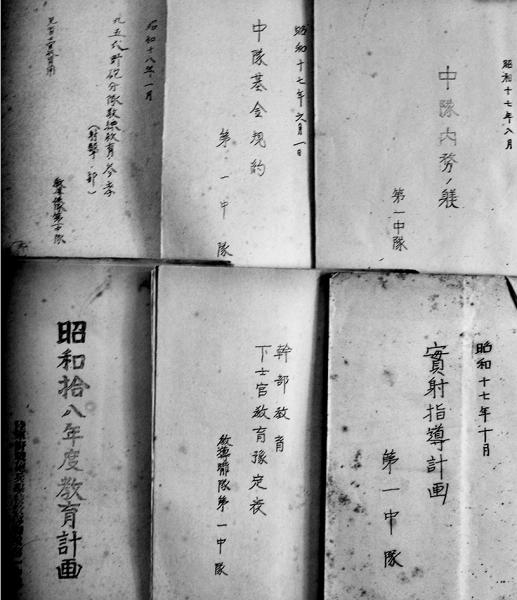 昭和十七年八月
中隊内務ノ躾
第一中隊
昭和十七年六月一日
中隊基金規約
第一中隊
昭和十八年一月
九五式野砲分隊教練教育参考
(射撃ノ部)
教導聯隊第一中隊
昭和十七年十月
實射指導計画
第一中隊
幹部教育
下士官教育豫定表
教導聯隊第一中隊
昭和拾八年度教育計画